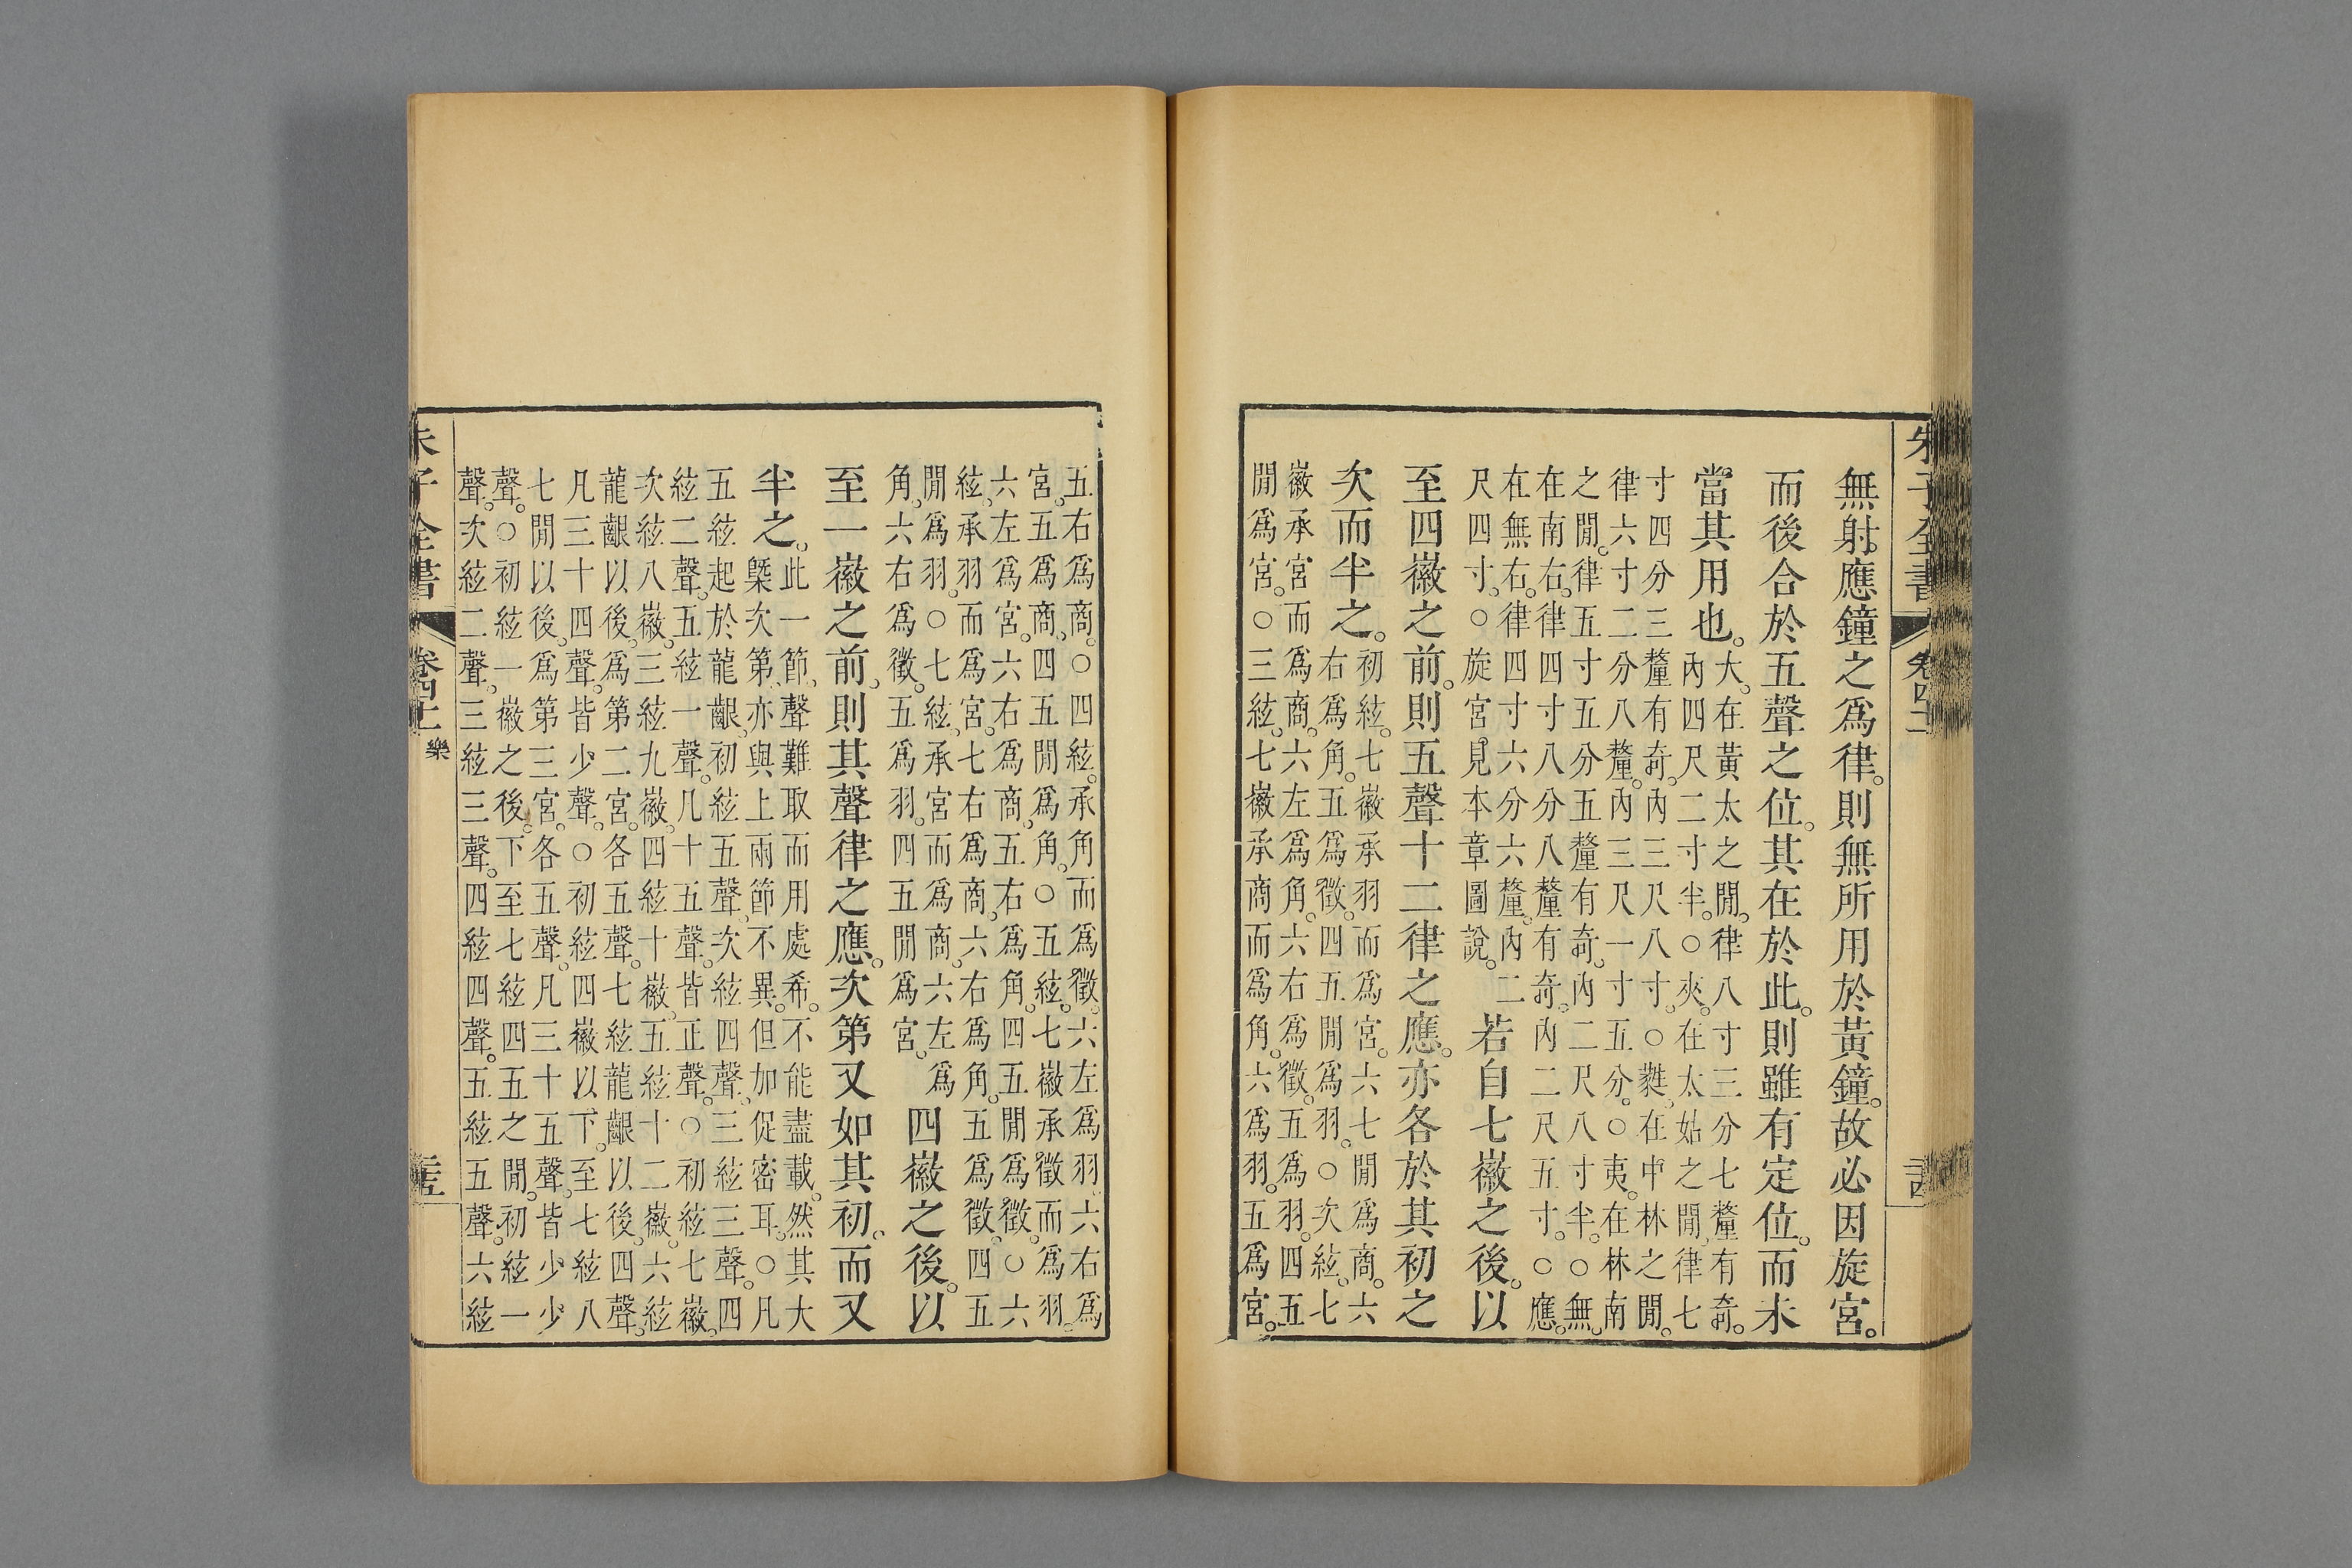 朱子全書
無射應鐘之爲律。則無所用於黃鐘。故必因旋宮。
而後合於五聲之位。其在於此。則雖有定位。而未
當其用也。
大。在黃太之閒。律八寸三分七釐有奇。
內四尺二寸半。○夾。在太姑之閒。律七
寸四分三釐有奇。內三尺八寸。○蕤。在中林之閒。
律六寸二分八釐。內三尺一寸五分。○夷。在林南
之閒。律五寸五分五釐有奇。內二尺八寸半。○無。
在南右。律四寸八分八釐有奇。內二尺五寸。○應。
在無右。律四寸六分六釐。內二
尺四寸。○旋宮見本章圖說。
若自七徽之後。以
至四徽之前。則五聲十二律之應。亦各於其初之
次而半之。
初絃。七徽承羽而爲宮。六七閒爲商。六
右爲角。五爲徵。四五閒爲羽。○次絃。七
徽承宮而爲商。六左爲角。六右爲徵。五爲羽。四五
閒爲宮。○三絃。七徽承商而爲角。六爲羽。五爲宮。
五右爲商。○四絃。承角而爲徵。六左爲羽。六右爲
宮。五爲商。四五閒爲角。○五絃。七徽承徵而爲羽。
六左爲宮。六右爲商。五右爲角。四五閒爲徵。○六
絃。承羽而爲宮。七右爲商。六右爲角。五爲徵。四五
閒爲羽。○七絃。承宮而爲商。六左爲
角。六右爲徵。五爲羽。四五閒爲宮。
四徽之後。以
至一徽之前。則其聲律之應。次第又如其初。而又
半之。
此一節。聲難取而用處希。不能盡載。然其大
槩次第。亦與上兩節不異。但加促密耳。○凡
五絃起於龍齦。初絃五聲。次絃四聲。三絃三聲。四
絃二聲。五絃一聲。凡十五聲。皆正聲。○初絃七徽。
次絃八徽。三絃九徽。四絃十徽。五絃十二徽。六絃
龍齦以後。爲第二宮。各五聲。七絃龍齦以後。四聲。
凡三十四聲。皆少聲。○初絃四徽以下。至七絃八
七閒以後。爲第三宮。各五聲。凡三十五聲。皆少少
聲。○初絃一徽之後。下至七絃四五之閒。初絃一
聲。次絃二聲。三絃三聲。四絃四聲。五絃五聲。六絃
朱子全書
樂